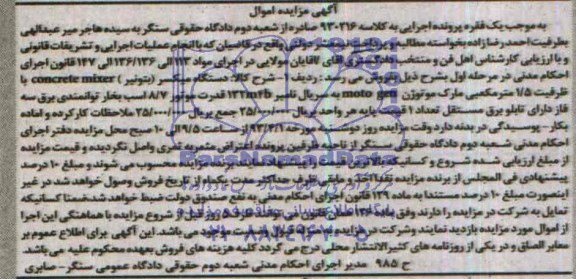 آگهی مزایده اموال
به موجب یک فقره پرونده اجرایی به کلاسه ۹۳۰۲۱۶ صادره از شعبه دوم دادگاه حقوقی سنگر به سیده هاجر میر عبدالهی
بطرفیت احمد رضازاده بخواسته مطالبه واقع در قاضیان که با انجام عملیات اجرایی و تشریفات قانونی
و با ارزیابی کارشناس اهل فن و منتخب دادگستری آقای کاتایان مولایی در اجرای مواد ۱۱۳ الی ۱۳۶/۱۲۶ الی ۱۴۷ قانون اجرای
احکام مدنی در مرحله اول بشرح ذیل بفروش می رسد: ردیف ۱- شرح کالا: دستگاه میکسر (بتونیر) concrete mixer با
ظرفیت ۷/۵ مترمکعبی مارک موتوژن moto gen به سریال تامبر ۱۳۲mfb قدرت موتور ۸/۷ اسب بخار توانمندی برق سه
فاز دارای تابلو برق مستقل تعداد ۱ قیمت پایه هر واحد ریال ۲۵/۰۰۰/۰۰۰ جمع بریال ۲۵/۰۰۰/۰۰۰ ملاحظات کارکرده و آماده
بکار - پوسیدگی در بدنه دارد وقت مزایده روز دوشنبه مورخه ۹۴/۳/۱ از ساعت ۹/۵ الی ۱۰ صبح محل مزایده دفتر اجرای
احکام مدنی شعبه دوم دادگاه حقوقی سنگر از ناحیه طرفین پرونده اعتراضی مثمر به ثمری واصل نگردیده و قیمت مزایده
از مبلغ ارزیابی شده شروع و کسانیکه بالاترین محسوب می شوند و مبلغ ۱۰ درصد
پیشنهادی فی المجلس از برنده مزایده نقداً اخذ و مابقی ظرف حداکثر یکماه از تاریخ فروش وصول خواهد شد در غیر
اینصورت مبلغ ۱۰ درصد مستنداً به ماده ۱۲۹ قانون اجرای احکام مدنی به نفع صندوق دولت ضبط خواهد شد ضمناً کسانیکه
تمایل به شرکت در مزایده را دارند وفق ماده قانون شروع مزایده با هماهنگی این اجرا
از اموال مورد مزایده بازدید نمایند وشرکت در مزایده برای می باشد. این آگهی برای اطلاع عموم بر
معابر الصاق و در یکی از روزنامه های کثیرالانتشار محلی درج می گردد کلیه هزینه های فروش بعهده محکوم علیه می باشد
ح ۹۸۵ مدیر اجرای احکام مدنی شعبه دوم حقوقی دادگاه عمومی سنگر- صابری
ParsNamadData
۰۲۱-۸۸۳۴۹۶۷۰